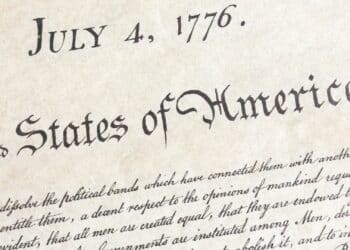 JULY 4, 1776.
States of America
dissolve the political bands which have connected them with another
entitle them, a decent respect to the opinions of mankind requ
evident, that all men are created equal, that they are endowed b
Governments are instituted among Men, de
abolish it, and to in